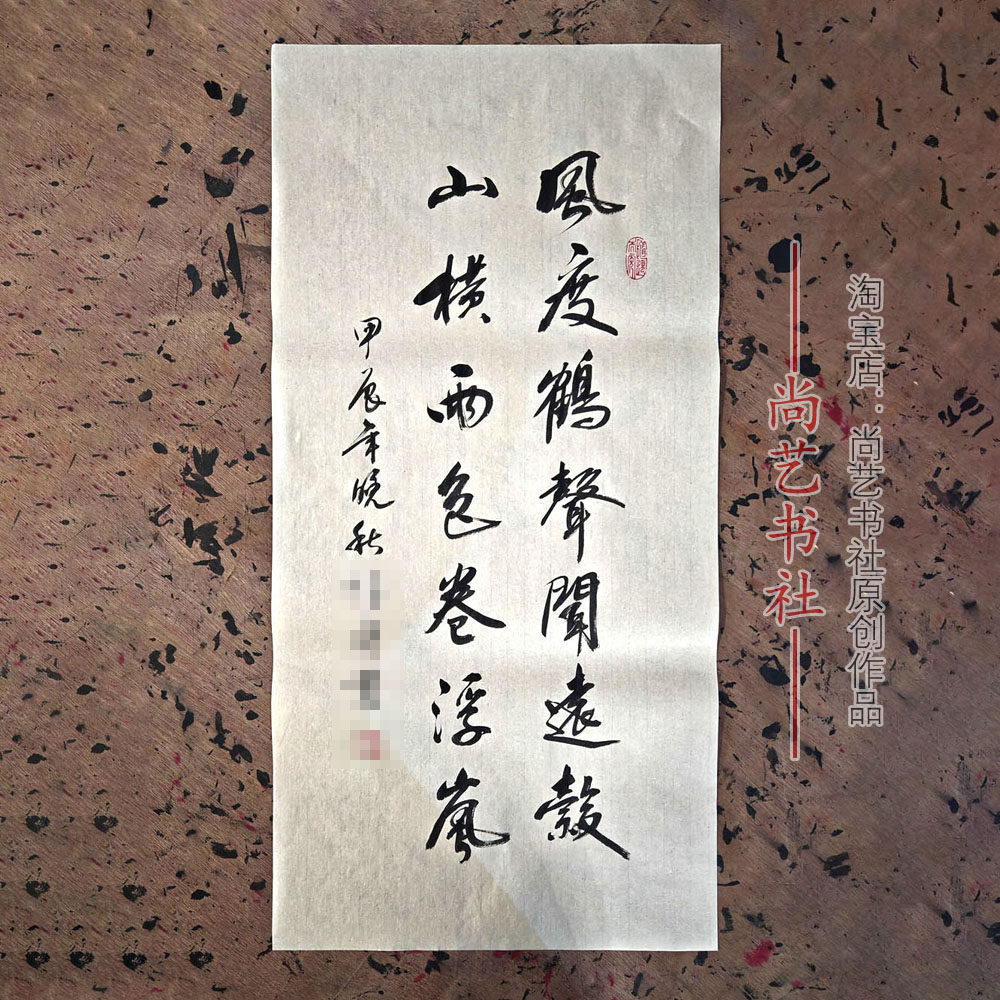 風度鶴聲聞遠縠
山橫雨色卷浮嵐
甲辰年晚秋
尚艺书社
淘宝店：尚艺书社原创作品